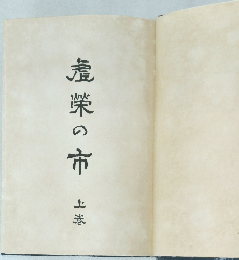 虚榮の市
上巻